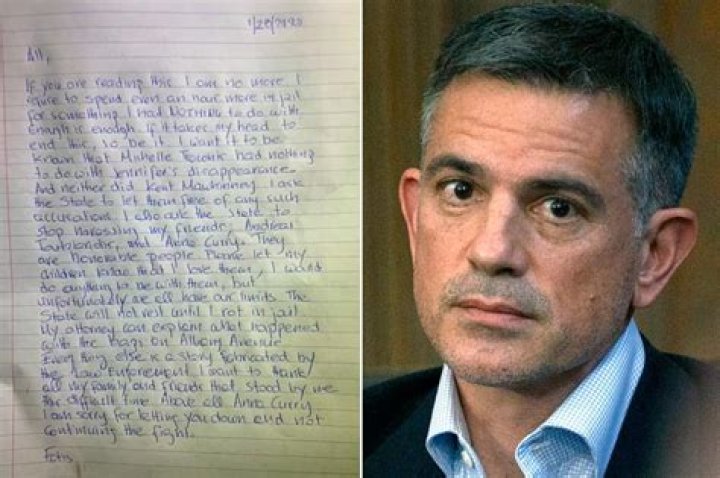 1/28/2020
All,
If you are reading this I am no more. I
refuse to spend even an hour more in jail
for something I had NOTHING to do with
Enough is enough. If it takes my head to
end this, so be it. I want it to be
known that Michelle Troconis had nothing
to do with Jennifer's disappearance.
And neither did Kent Mawhinney. I ask
the State to let them free of any such
accusations. I also ask the State to
stop harassing my friends, Andreas
Toutziaridis, and Anna Curry. They
are Honorable people. Please let my
children know that I love them, I would
do anything to be with them, but
unfortunately we all have our limits. The
State will not rest until I rot in jail
My attorney can explain what happened
with the bags on Albany Avenue
Everything else is a story fabricated by
the Law Enforcement. I want to thank
all my family and friends that stood by me
this difficult time. Above all Anna Curry
I am sorry for letting you down and not
continuing the fight.
Fotis